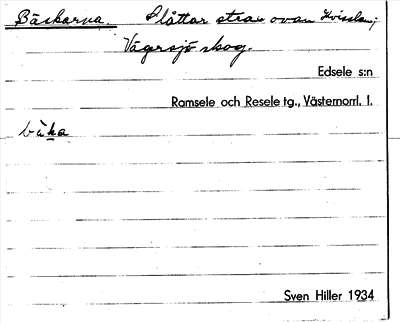 Bäskarna. Slåttar strax ovan Kvisslan;
Vägersjö skog.
Edsele s:n
Ramsele och Resele tg., Västernorrl. l.
Sven Hiller 1934